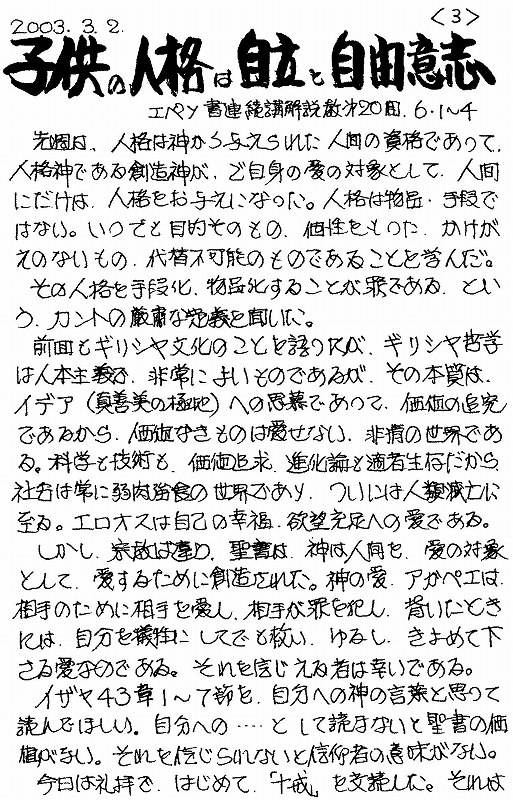 2003.3.2. 〈3〉
子供の人格は自立と自由意志
エペソ書連続講解説教第20回. 6.1~4
先週は、人格は神から与えられた人間の資格であって、
人格神である創造神が、ご自身の愛の対象として、人間
にだけは、人格をお与えになった。人格は物品・手段で
はない。いつでも目的そのもの、個性をもった、かけが
えのないもの、代替不可能のものであることを学んだ。
その人格を手段化、物品化することが罪である、とい
う、カントの厳粛な定義を聞いた。
前回もギリシヤ文化のことを語ったが、ギリシヤ哲学
は人本主義で、非常によいものであるが、その本質は、
イデア(真善美の極地)への思慕であって、価値の追究
であるから、価値なきものは愛せない、非情の世界であ
る。科学と技術も、価値追求、進化論と適者生存だから
社会は常に弱肉強食の世界であり、ついには人類滅亡に
至る。エロオスは自己の幸福、欲望充足への愛である。
しかし、聖書は、神は人間を、愛の対象
として、愛するために創造された。神の愛、アガペエは、
相手のために相手を愛し、相手が罪を犯し、背いたとき
には、自分を犠牲にしてでも救い、ゆるし、きよめて下
さる愛なのである。それを信じえる者は幸いである。
イザヤ43章1~7節を、自分への神の言葉と思って
読んでほしい。自分への……として読まないと聖書の価
値がない。それを信じられないと信仰者の意味がない。
今日は礼拝で、はじめて、「十戒」を交読した。それは